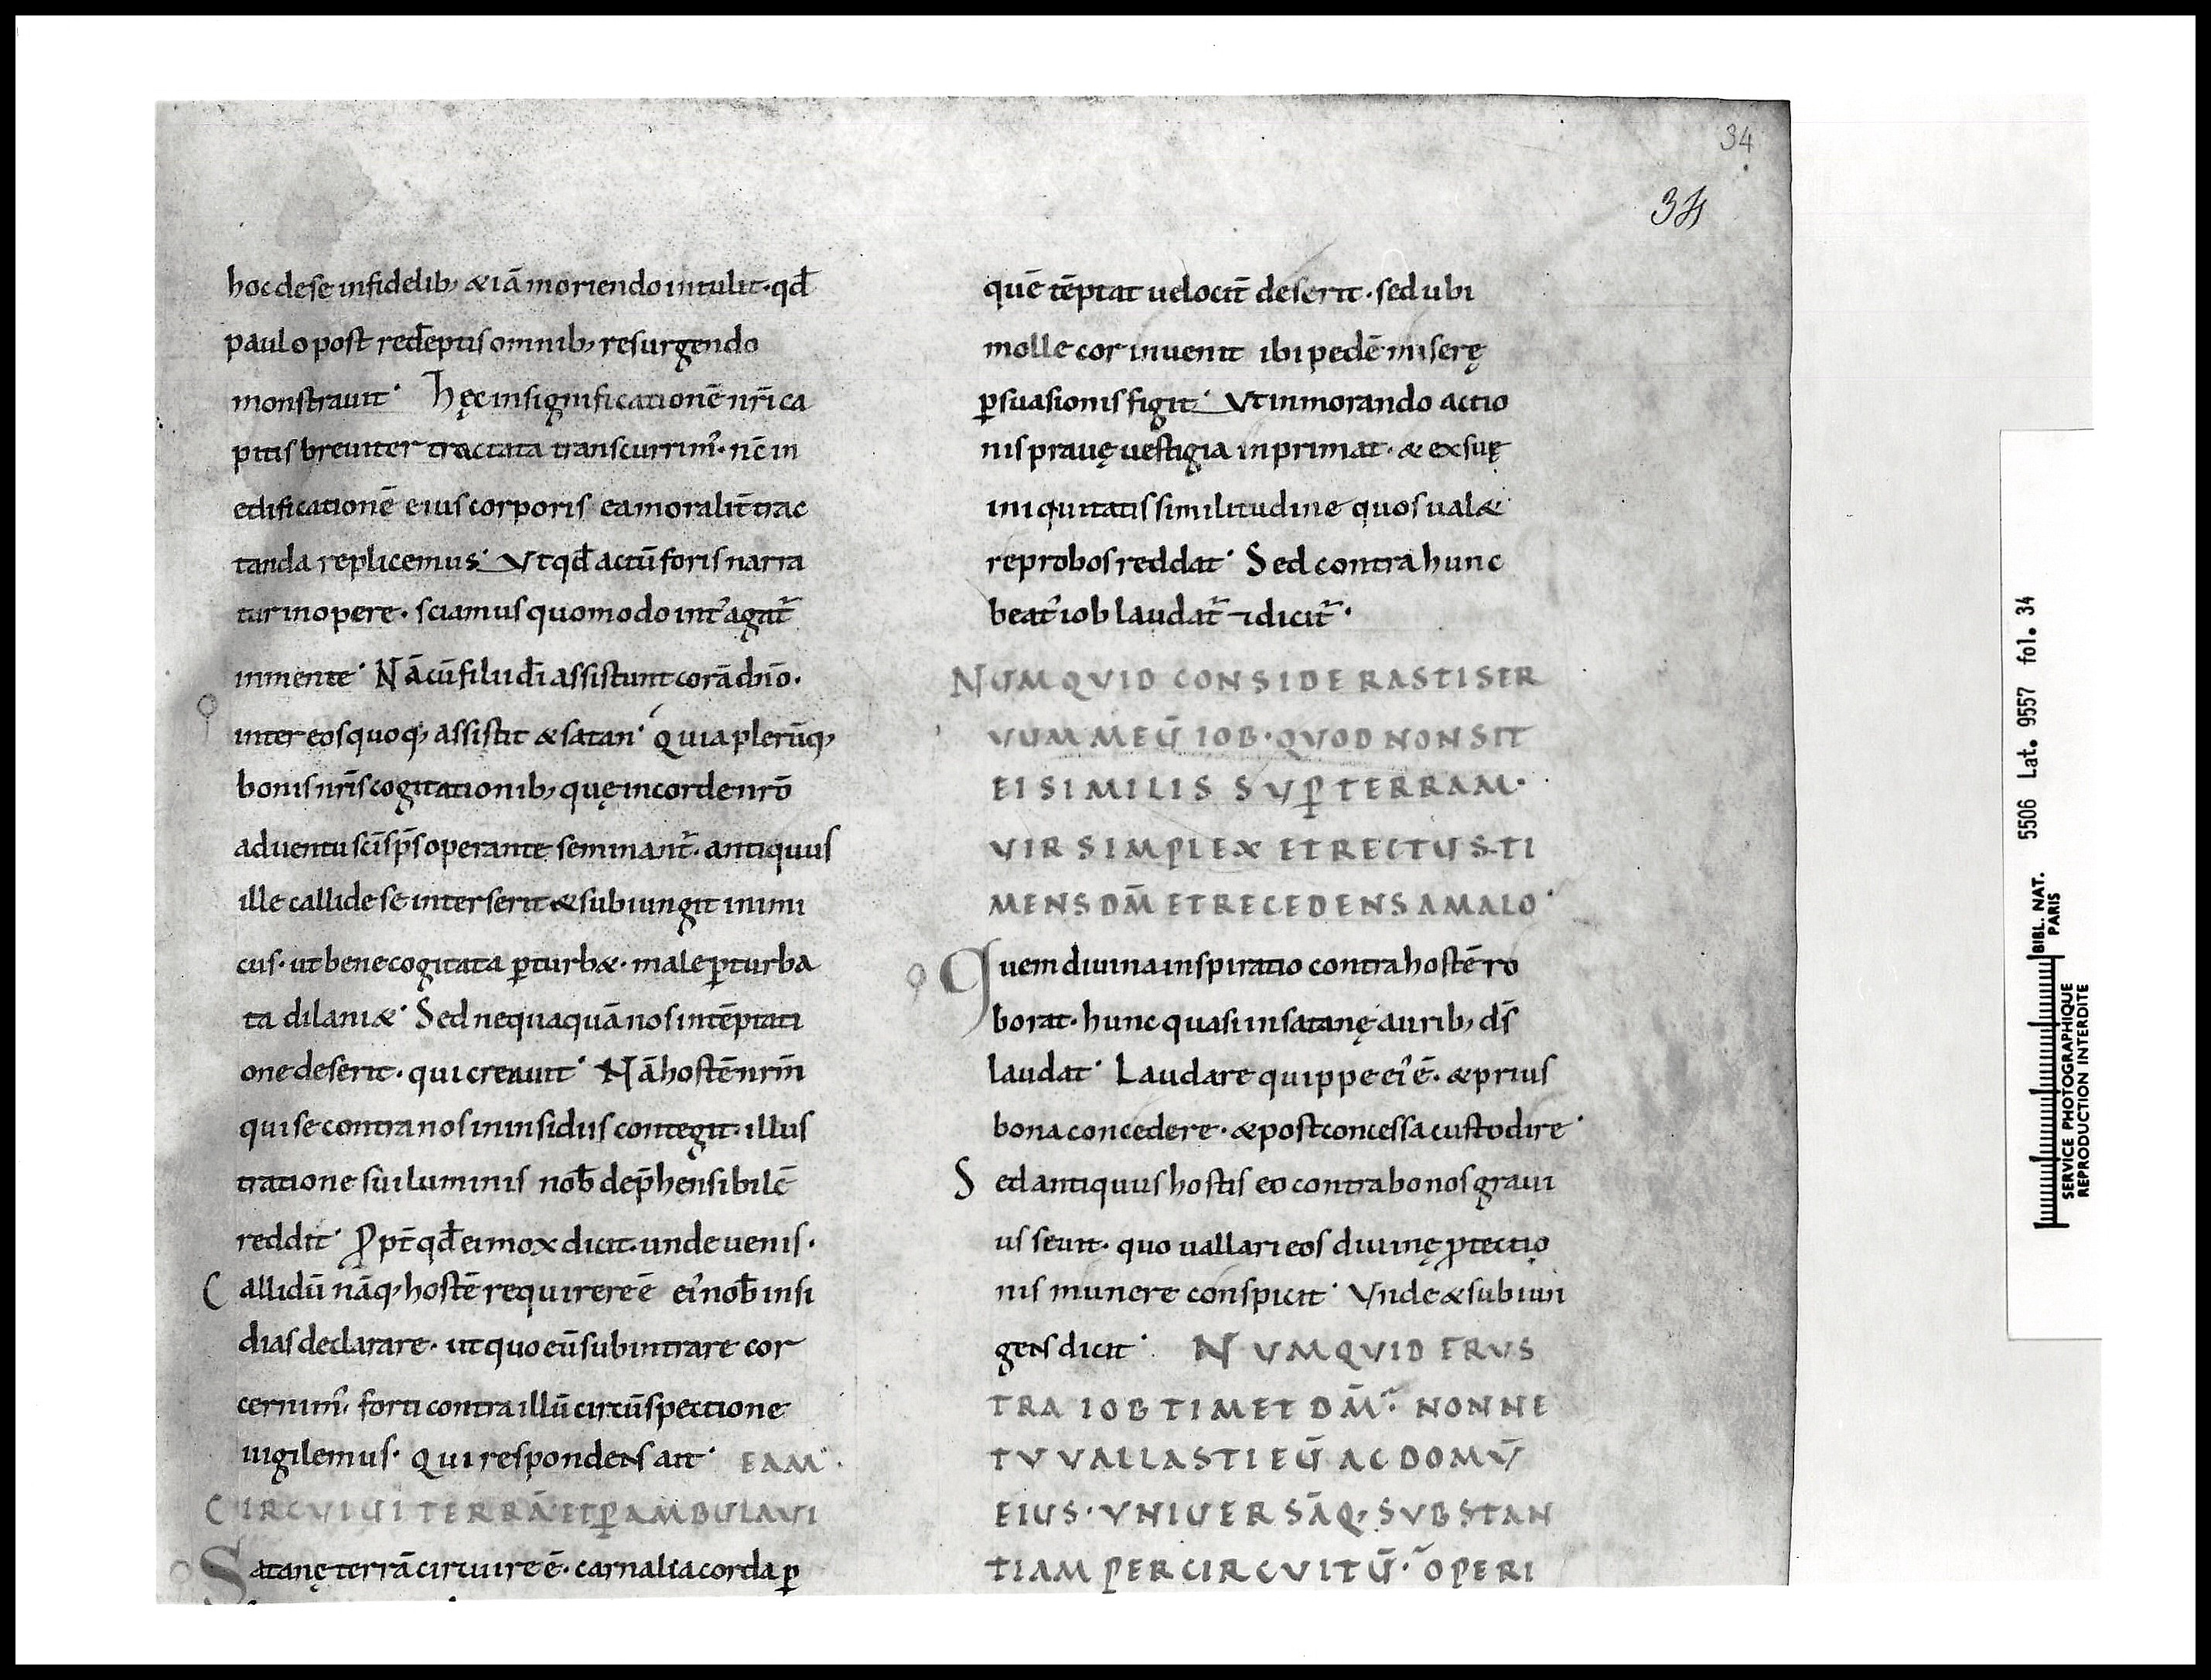 34
34
hoc dese infidelib; &iā moriendo intulit·qđ
paulo post redēptis omnib; resurgendo
monstrauit· Hęc insignificationē nr̄i ca
pitis breuiter tractata transcurrim᾽· nc̄ in
edificationē eius corporis ea moralit̄ trac
tanda replicemus· Vt qđ actū foris narra
tur in opere· sciamus quomodo int᾽ agat̄
in mente· Nā cū filii dī assistunt corā dn̄o·
inter eos quoq; assistit & satan· Quia plerūq;
bonis nr̄is cogitationib; quę in corde nr̄o
aduentu sc̄i sp̄s operante seminant̄· antiquus
ille callide se interserit & subiungit inimi
cus· ut bene cogitata ꝑturb&· male ꝑturba
ta dilani&· Sed nequaquā nos in tēptati
one deserit· qui creauit· Nā hostē nr̄m
qui se contra nos in insidiis contegit· illus
tratione sui luminis nob̄ dep̄hensibilē
reddit· Ꝓpt̄ qđ ei mox dicit· unde uenis·
Callidū nāq; hostē requirere ē ei᾽ nob̄ insi
dias declarare· ut quo eū subintrare cor
cernim᾽· forti contra illū circūspectione
uigilemus· Qui respondens ait· EAM·
CIRCVIVI TERRĀ ET ꝐAMBULAVI
Satanę terrā circuire ē· carnalia corda ꝑ
quē tēptat uelocit̄ deserit· sed ubi
molle cor inuenit ibi pedē miserę
ꝑsuasionis figit· Vt inmorando actio
nis prauę uestigia inprimat· & ex suę
iniquitatis similitudine quos ual&
reprobos reddat· Sed contra hunc
beat᾽ iob laudat̄ ⁊ dicit̄·
NUMQVID CONSIDERASTI SER
VUM MEŪ IOB· QVOD NON SIT
EI SIMILIS SVꝐ TERRAM·
VIR SIMPLEX ET RECTUS· TI
MENS DM̄ ET RECEDENS A MALO·
Quem diuina inspiratio contra hostē ro
borat· hunc quasi in satanę aurib; ds̄
laudat· Laudare quippe ei᾽ ē· & prius
bona concedere· & post concessa custodire·
Sed antiquus hostis eo contra bonos graui
us seuit· quo uallari eos diuinę ꝓtectio
nis munere conspicit· Vnde & subiun
gens dicit· NVMQVID FRVS
TRA IOB TIMET DM̄· NONNE
TV VALLASTI EŪ AC DOMV̄
EIUS· VNIUERSĀQ; SVBSTAN
TIAM PER CIRCVITŪ· OPERI
5506 Lat. 9557 fol. 34
BIBL. NAT.
PARIS
SERVICE PHOTOGRAPHIQUE
REPRODUCTION INTERDITE